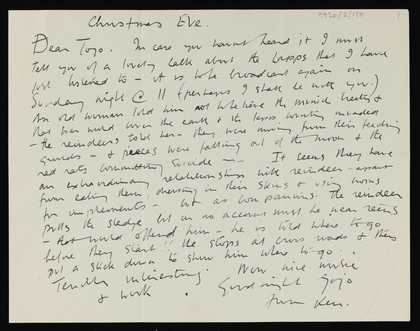 Christmas Eve.
Dear Jojo. In case you havent heard it I must
tell you of a lovely talk about the Lapps that I have
just listened to - it is to be broadcast again on
Sunday night @ 11 (perhaps I shall be with you)
An old woman told him
that has wound over the earth & the
- the reindeers told her - they were moving from their feeding
grounds - & pieces were falling out of the moon & the
red rats committing suicide - It seems they have
an extraordinary relationship with reindeer - apart
from eating them, dressing in their skins & using horns
for implements - but as companions. The reindeer
pulls the sledge but on no account must he wear reins
- that would offend him - he is told where to go
before they start!! He stops at cross roads & they
put a stick down to show him where to go.
Terribly interesting. Now nice music
& work. Goodnight Jojo
from Ken.